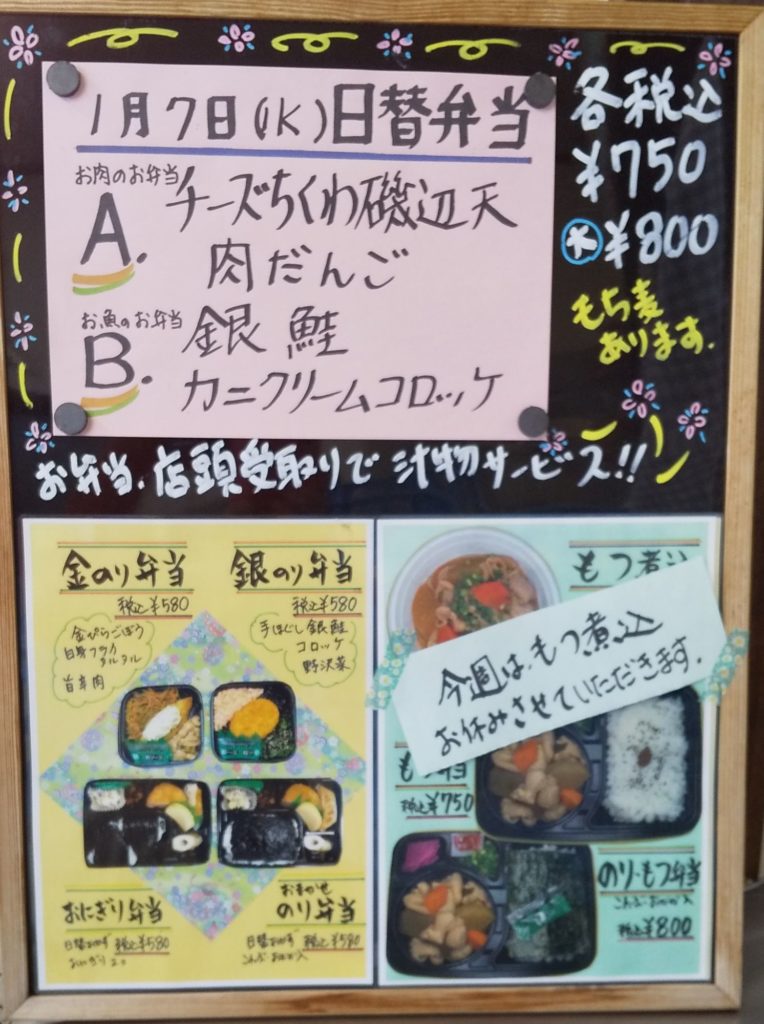 1月7日(水)日替弁当
お肉のお弁当
A. チーズちくわ磯辺天
肉だんご
お魚のお弁当
B. 銀鮭
カニクリームコロッケ
各税込
¥750
大 ¥800
もち麦
あります.
お弁当、店頭受取りで汁物サービス!!
金のり弁当
税込¥580
金ぴらごぼう
白身フライ
タルタル
旨辛肉
銀のり弁当
税込¥580
手ほぐし銀鮭
コロッケ
野沢菜
おにぎり弁当
日替おかず 税込¥580
おにぎり2コ
おまかせ
のり弁当
日替おかず 税込¥580
こんぶ・おかか入
もつ煮込
今週は、もつ煮込
お休みさせていただきます.
もつ弁当
税込¥750
のり・もつ弁当
こんぶ・おかか入
税込¥800